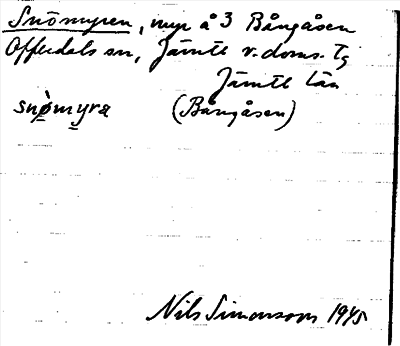 Snömyren, myr å 3 Bångåsen
Offerdals sn, Jämtl v. doms. tg
Jämtl län
snö̀myra (Bångåsen)
Nils Simonsson 1945